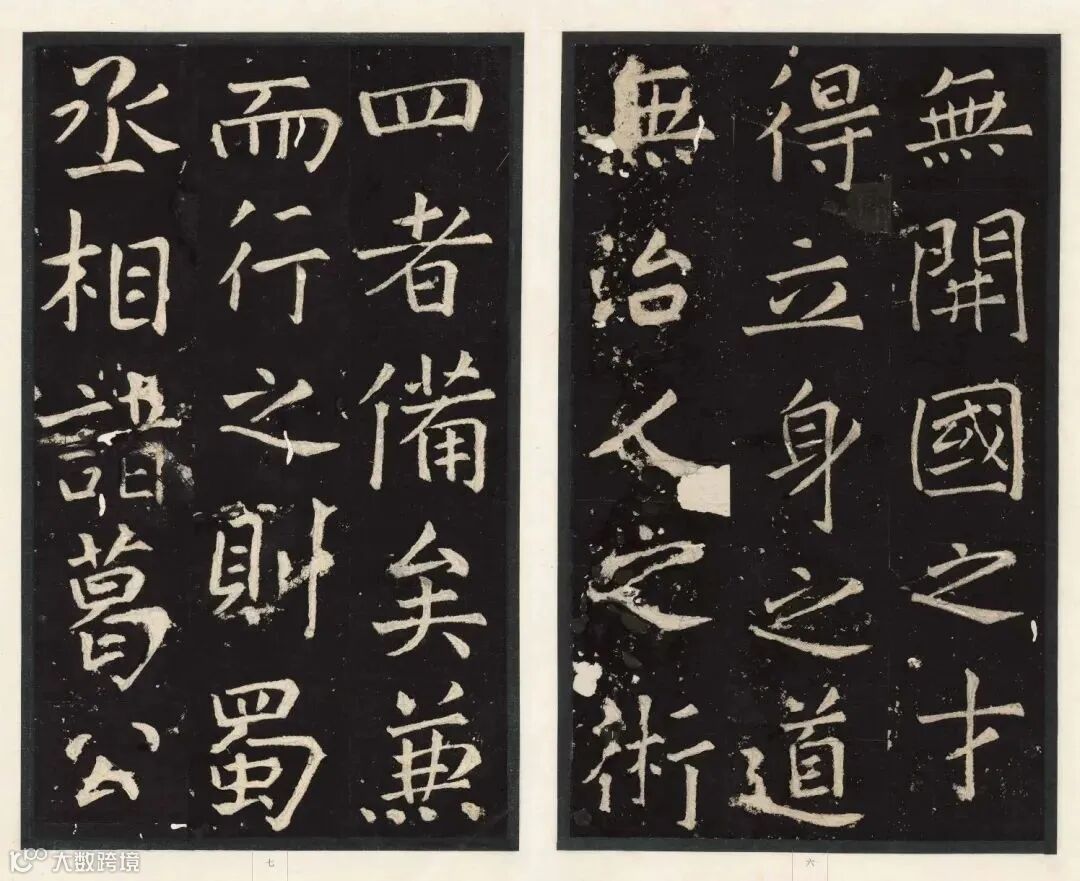 無開國之才
得立身之道
無治人之術
四者備矣兼
而行之則蜀
丞相諸葛公
六
七
大数跨境